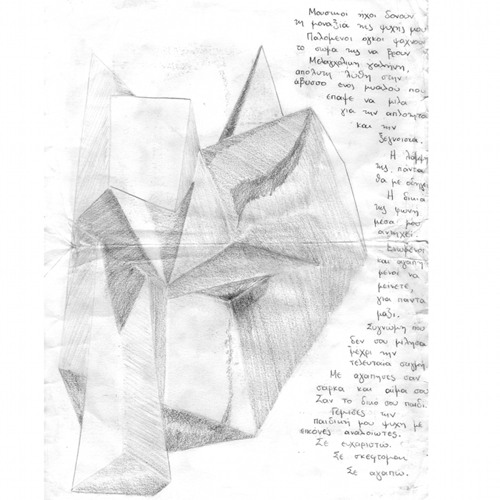 Μουσικοί ήχοι δονούν
τη μοναξιά της ψυχής μου
Παλόμενοι όγκοι ψάχνουν
το σώμα της να βρουν
Μελαγχολική γαλήνη,
απόλυτη λύθη στην
άβυσσο ενός μυαλού που
έπαψε να μιλά
για την απλότητα
και την
ξεγνοιασιά.
Η λάμψη
της, πάντα
θα με οδηγεί
Η δικιά
της φωνή
μέσα μου
αντηχεί.
Ενωμένοι
και αγαπη
μένοι να
μείνετε,
για πάντα
μαζί.
Συγνώμη που
δεν σου μίλησα
μέχρι την
τελευταία στιγμή.
Με αγάπησες σαν
σάρκα και αίμα σου
Σαν το δικό σου παιδί.
Γέμισες την
παιδική μου ψυχή με
εικόνες αναλοίωτες.
Σε ευχαριστώ.
Σε σκέφτομαι
Σε αγαπώ.